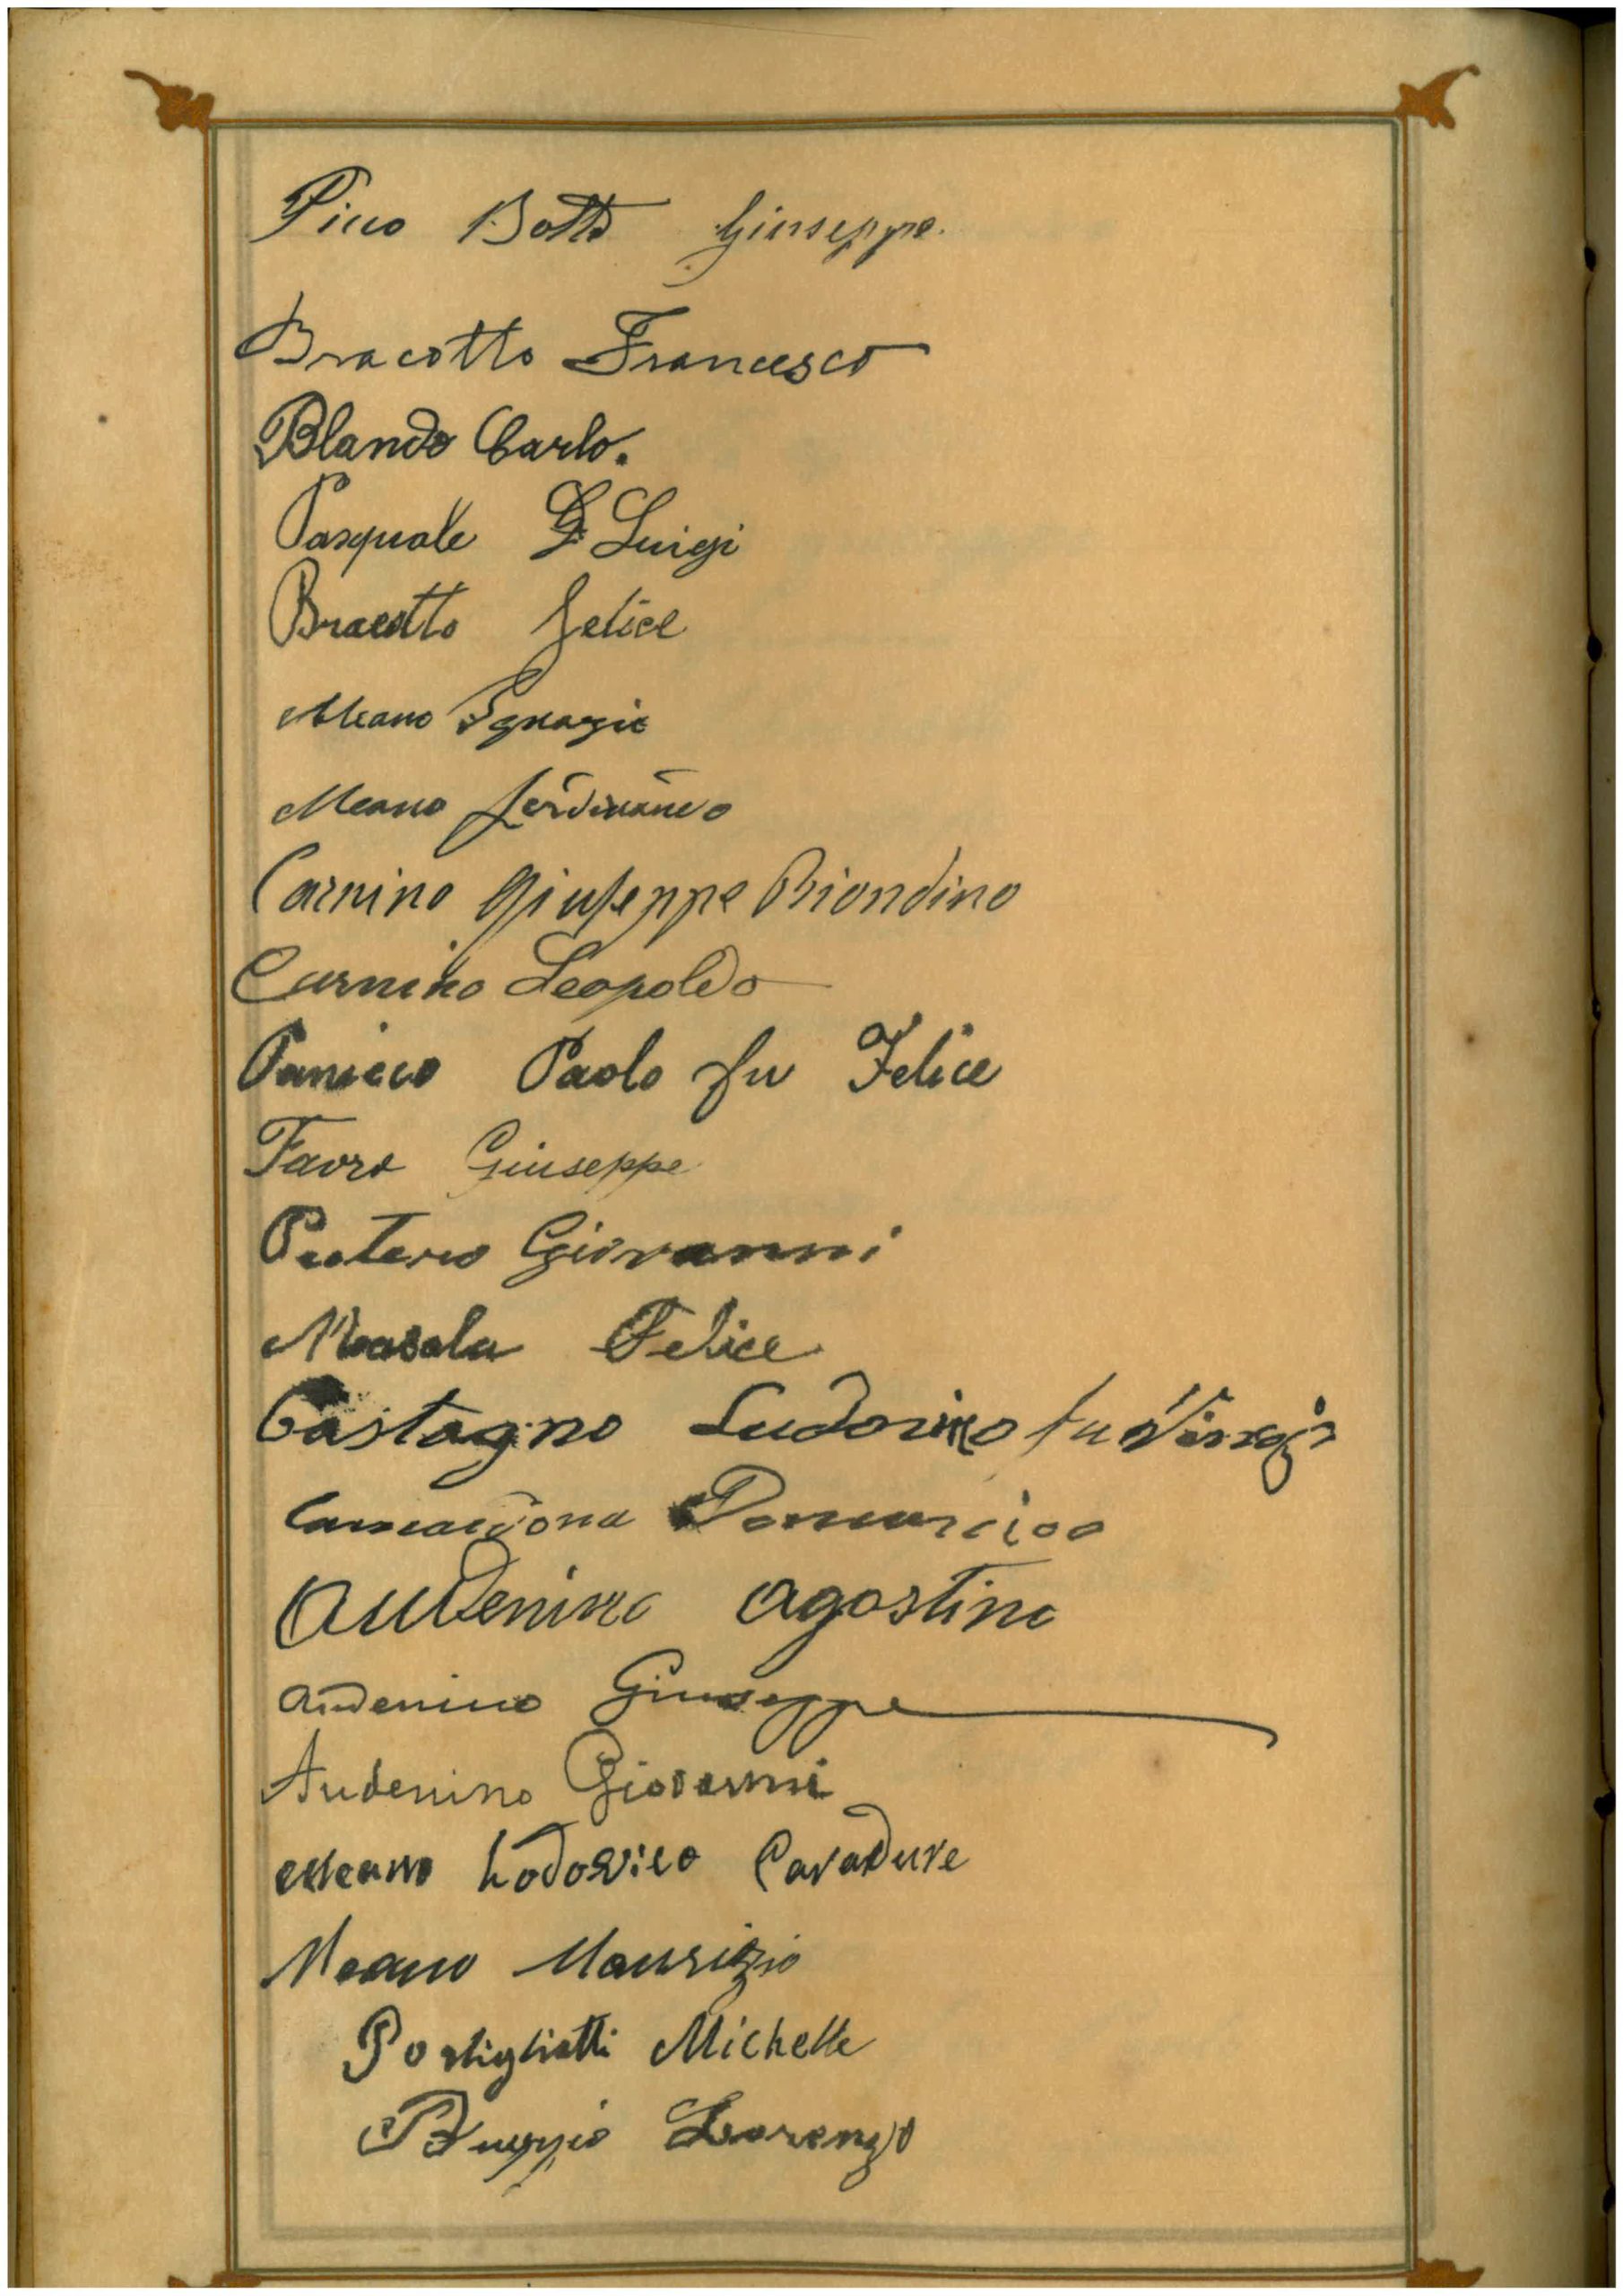 Picco Botto Giuseppe.
Bracotto Francesco
Blando Carlo.
Pasquale G Luigi
Bracotto felice
Meano Ignazio
Meano ferdinando
Carnino Giuseppe Biondino
Carnino Leopoldo
Panicco Paolo fu Felice
Favro Giuseppe
Giovanni
Masala Felice
Castagno Ludovico fu
Domenico
Audenino Agostino
Audenino Giuseppe
Audenino Giovanni
Meano Lodovico
Meano Maurizio
Portigliatti Michelle
Lorenzo